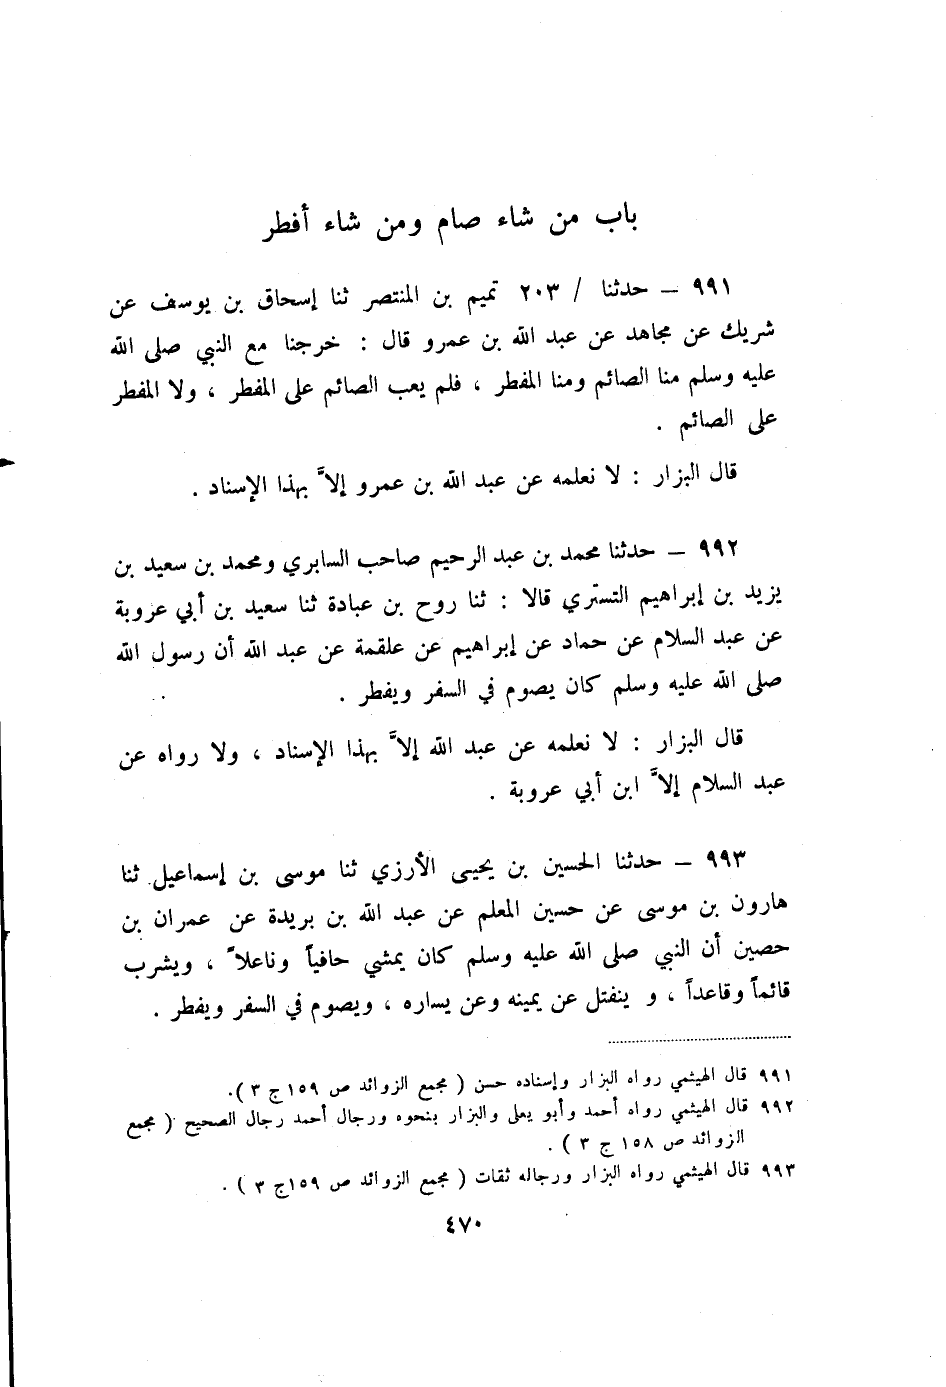 باب من شاء صام ومن شاء أفطر
٩٩١ – حدثنا / ٢٠٣ تميم بن المنتصر ثنا إسحاق بن يوسف عن
شريك عن مجاهد عن عبد الله بن عمرو قال : خرجنا مع النبي صلى الله
عليه وسلم منا الصائم ومنا المفطر ، فلم يعب الصائم على المفطر ، ولا المفطر
على الصائم .
قال البزار : لا نعلمه عن عبد الله بن عمرو إلاَّ بهذا الإسناد .
٩٩٢ – حدثنا محمد بن عبد الرحيم صاحب السابري ومحمد بن سعيد بن
يزيد بن إبراهيم التستري قالا : ثنا روح بن عبادة ثنا سعيد بن أبي عروبة
عن عبد السلام عن حماد عن إبراهيم عن علقمة عن عبد الله أن رسول الله
صلى الله عليه وسلم كان يصوم في السفر ويفطر .
قال البزار : لا نعلمه عن عبد الله إلاَّ بهذا الإسناد ، ولا رواه عن
عبد السلام إلاَّ ابن أبي عروبة .
٩٩٣ – حدثنا الحسين بن يحيى الأرزي ثنا موسى بن إسماعيل ثنا
هارون بن موسى عن حسين المعلم عن عبد الله بن بريدة عن عمران بن
حصين أن النبي صلى الله عليه وسلم كان يمشي حافياً وناعلاً ، ويشرب
قائماً وقاعداً ، و ينفتل عن يمينه وعن يساره ، ويصوم في السفر ويفطر .
٩٩١ قال الهيثمي رواه البزار وإسناده حسن ( مجمع الزوائد ص ١٥٩ج ٣ ).
٩٩٢ قال الهيثمي رواه أحمد وأبو يعلى والبزار بنحوه ورجال أحمد رجال الصحيح ( مجمع
الزوائد ص ١٥٨ ج ٣ ) .
٩٩٣ قال الهيثمي رواه البزار ورجاله ثقات ( مجمع الزوائد ص ١٥٩ج ٣ ) .
٤٧٠